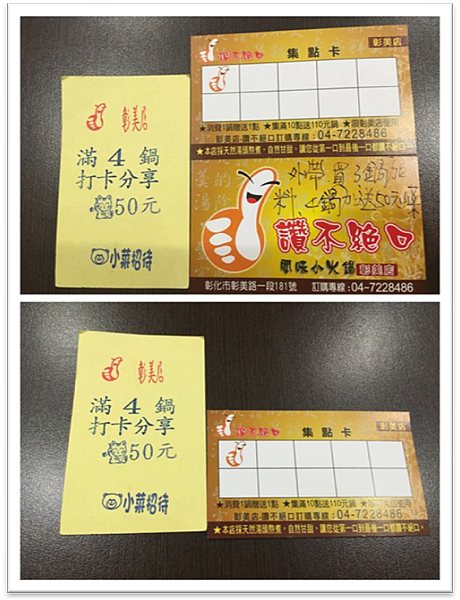 彰美店
滿4鍋
打卡分享
50元
小菜招待
讚不絕口
集點卡
彰美店
★消費1鍋贈送1點 ★集滿10點送110元鍋 ★限彰美店使用
彰美店-讚不絕口訂購專線:04-7228486
★本店採天然湯頭熬煮,自然甘甜,讓您從第一口到最後一口都讚不絕口。
外帶買3鍋加
料,1鍋加送50元菜
讚不絕口
風味小火鍋 彰美店
彰化市彰美路一段181號 訂購專線:04-7228486
彰美店
滿4鍋
打卡分享
50元
小菜招待
讚不絕口
集點卡
彰美店
★消費1鍋贈送1點 ★集滿10點送110元鍋
彰美店-讚不絕口訂購專線:04-7228486
★本店採天然湯頭熬煮,自然甘甜,讓您從第一口到最後一口都讚不絕口。